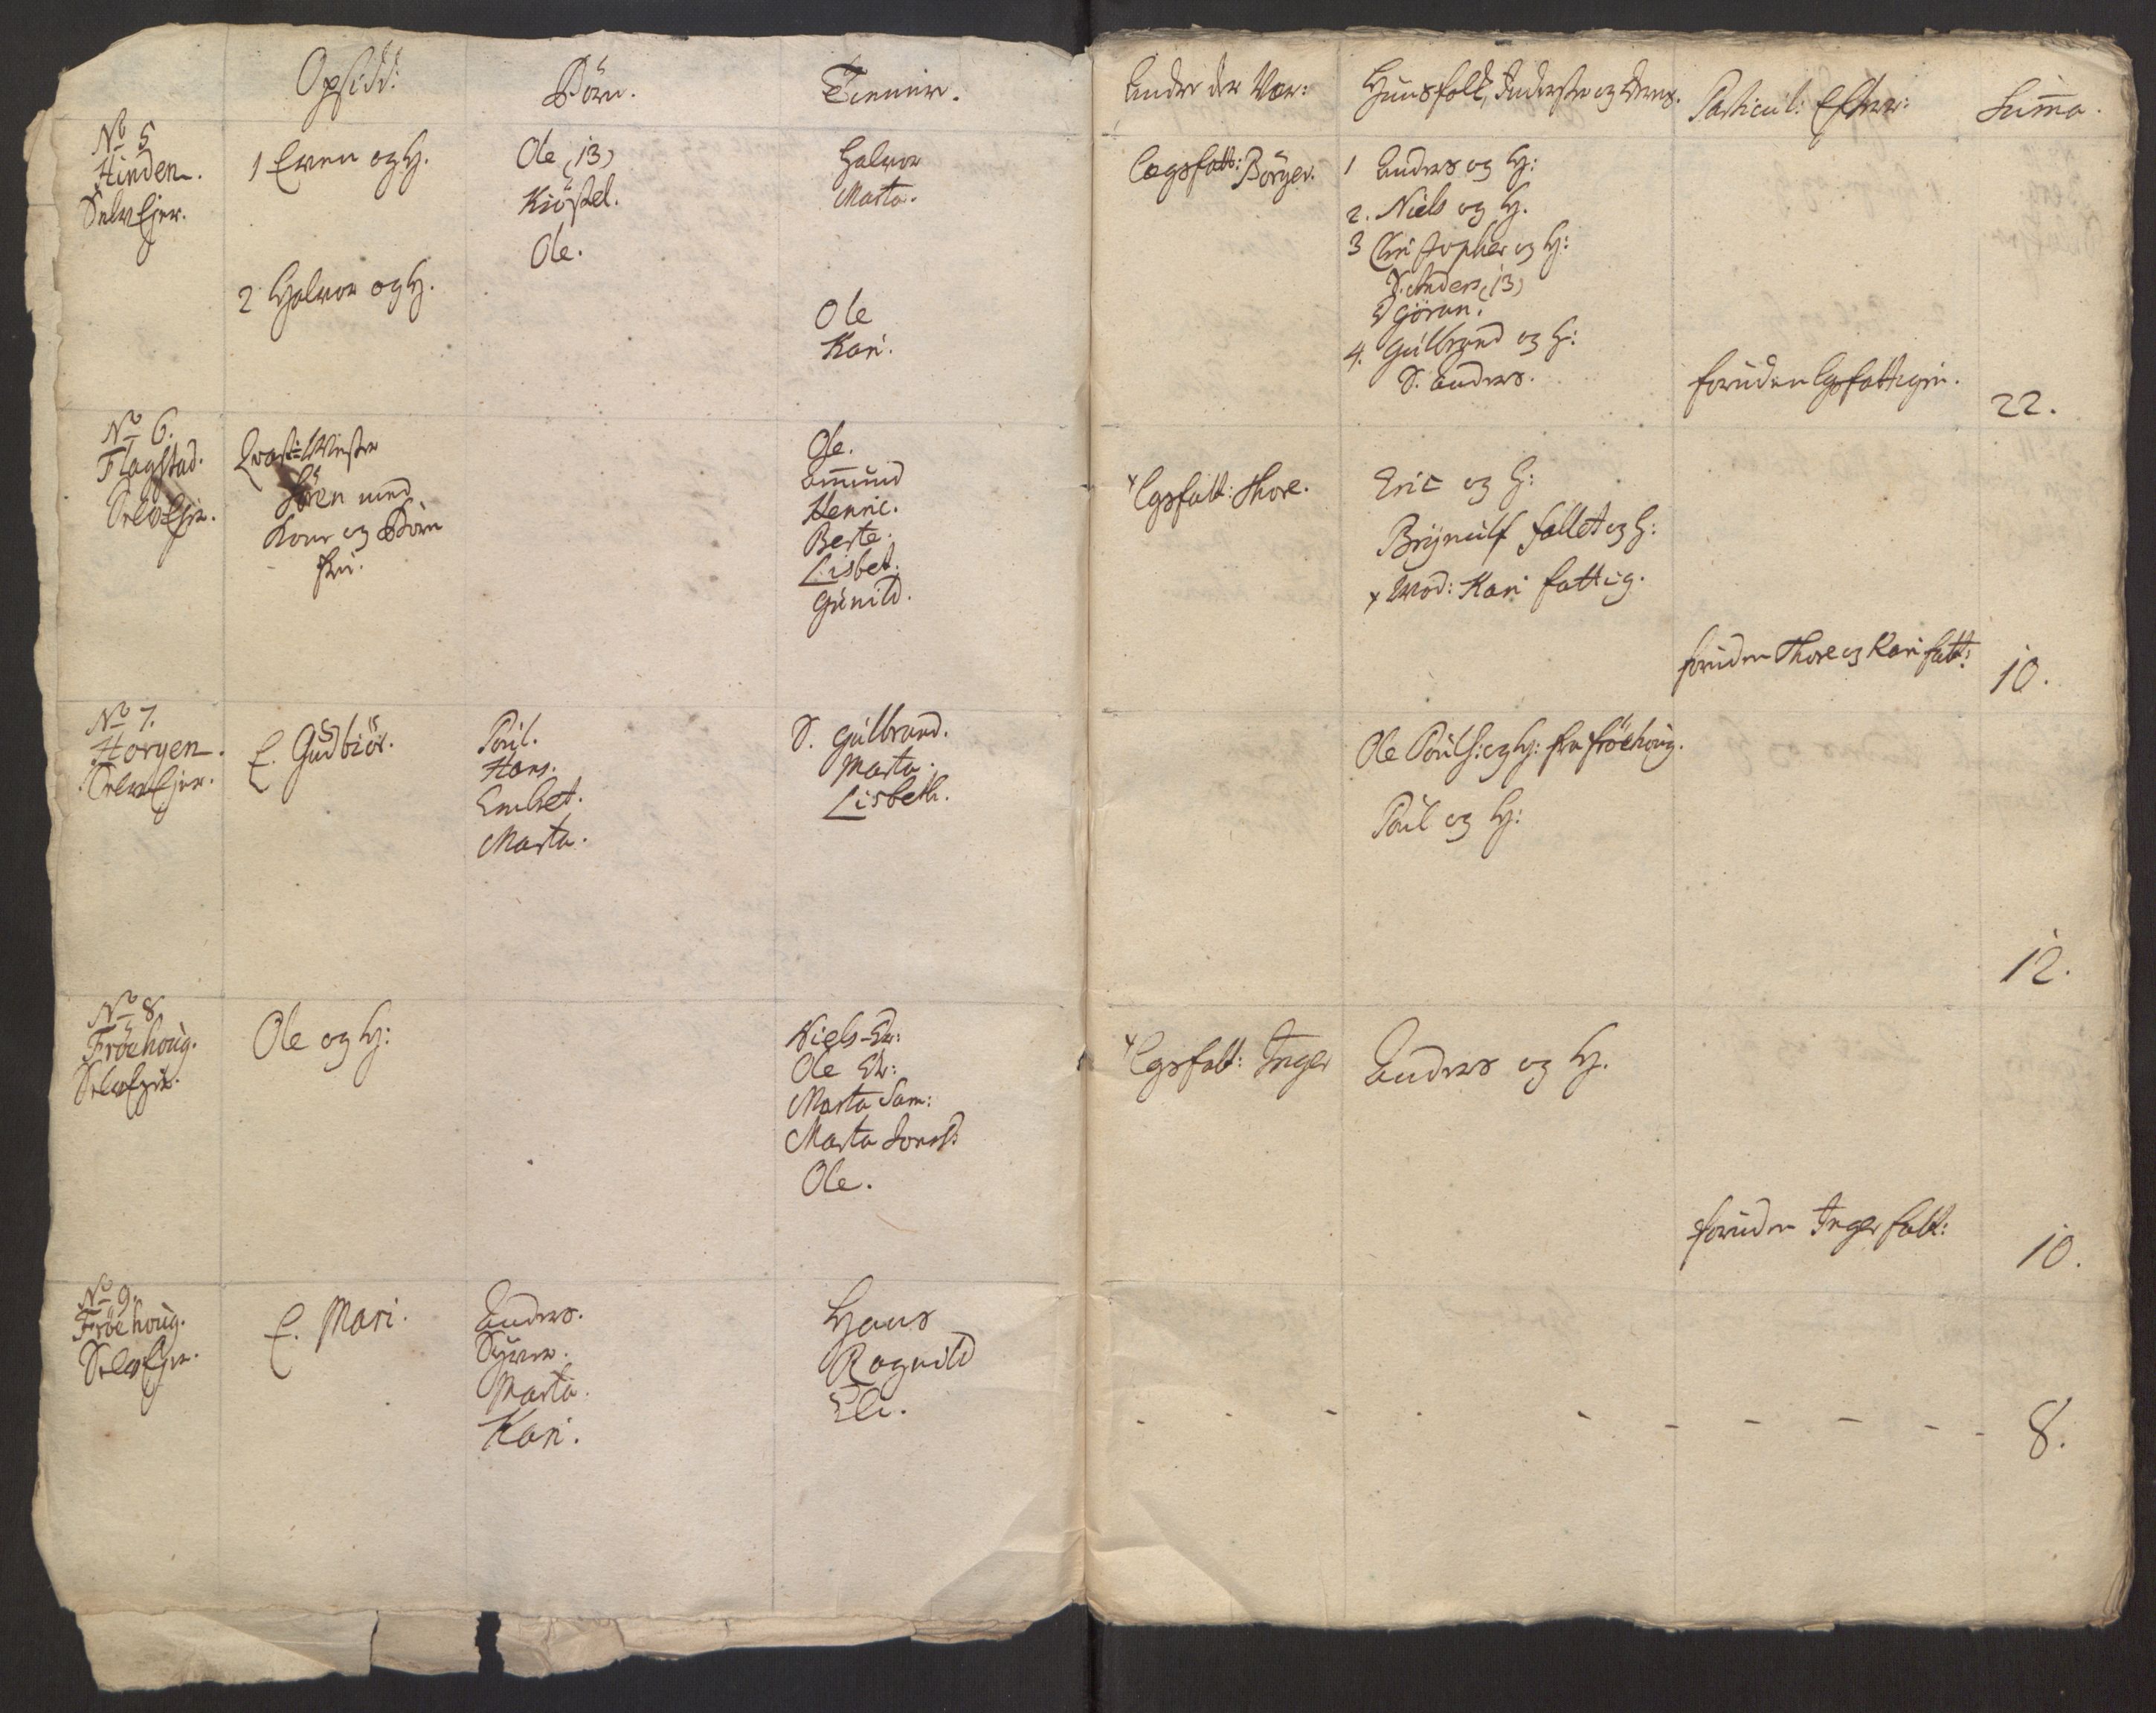 Opsidd:
Börn.
Tienner.
Andre der Vær:
Huusfolk, Inderster og deres.
Particul: Efterr:
Suma.
No 5
Hinden.
Selv Ejer.
1 Even og H.
2 Halvor og H.
Ole (13)
Kiöstel.
Ole.
Halvor
Marta.
Ole
Kari.
Lægsfatt: Börger.
1 Anders og H:
2. Niels og H.
3 Christopher og H:
S. Anders (13)
D Göran.
4. Gulbrand og H:
S. Anders.
foruden Lgsfattigen.
22.
No 6.
Flagstad.
Selv Ejer.
Qvart: Mester
Sören med
Kone og Börn
frii.
Ole.
Amund
Henric.
Berte.
Lisbet.
Gunild.
x Lgsfatt: Thore.
Eric og H:
Brynulf fallet og H:
x Mod: Kari fattig.
foruden Thore og Kari fatt:
10.
No 7.
Horgen.
Selv Ejer.
E. Gudbiör.
Poul.
Hans.
Embret.
Marta.
S. Gulbrand.
Marta.
Lisbeth.
Ole Pouls: og H: fra Fröehoug.
Poul og H:
12.
No 8
Fröehoug.
Selv Ejer.
Ole og H:
Niels Er:
Ole Er:
Marta Sam:
Marta Torsd:
Ole.
x Lgsfatt: Inger
Anders og H.
foruden Inger fatt:
10.
No 9.
Fröehoug.
Selv Ejer.
E. Mari.
Anders.
Syver.
Marta.
Kari.
Hans
Ragnild
Eli.
- - - - - - - - - -
8.